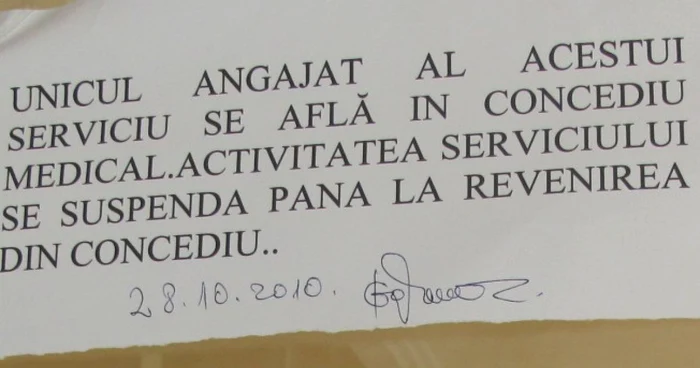 UNICUL ANGAJAT AL ACESTUI
SERVICIU SE AFLĂ IN CONCEDIU
MEDICAL.ACTIVITATEA SERVICIULUI
SE SUSPENDA PANA LA REVENIREA
DIN CONCEDIU..
28.10.2010.